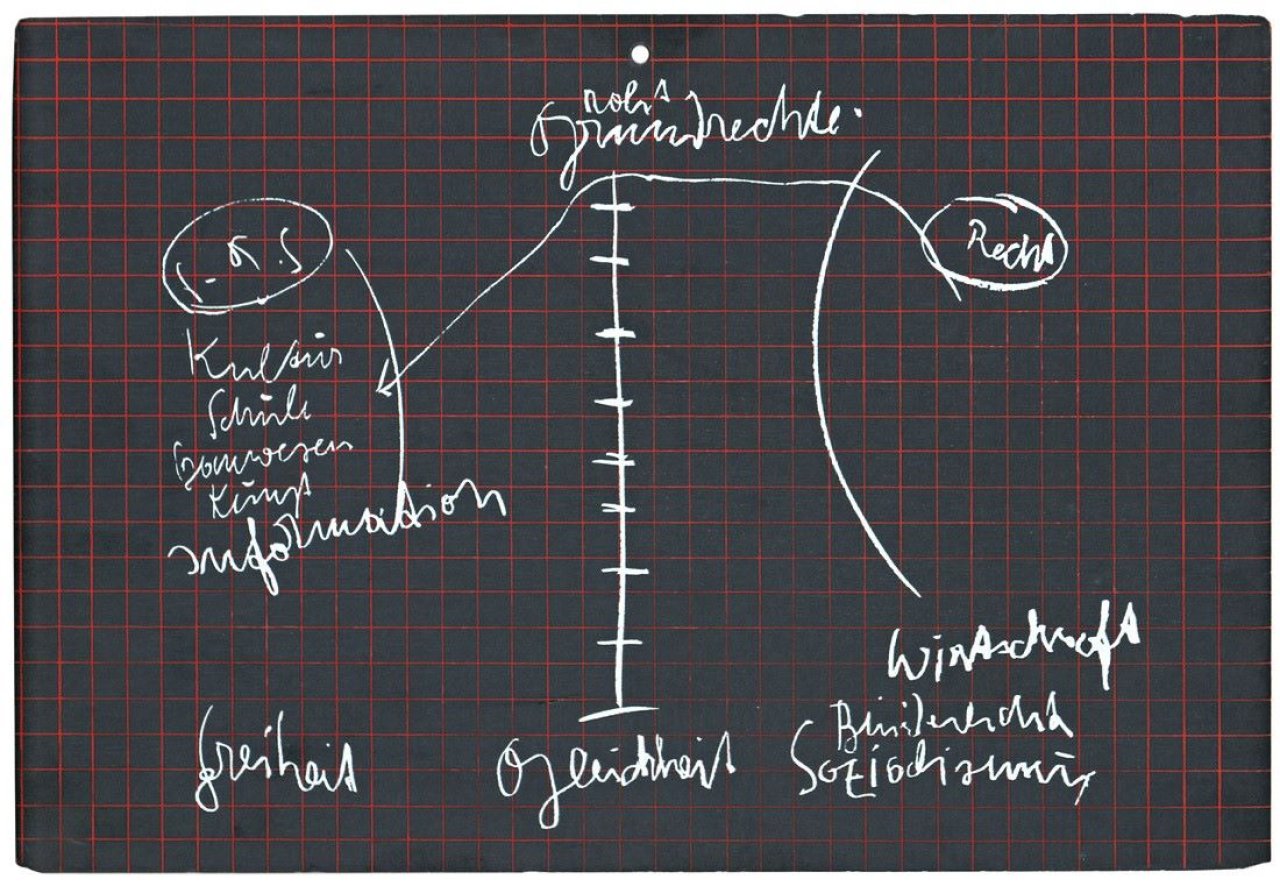 Grundrechte.
Recht
Kultur
Schule
Kunst
Information
Wirtschaft
Freiheit
Gleichheit
Brüderlichkeit
Sozialismus